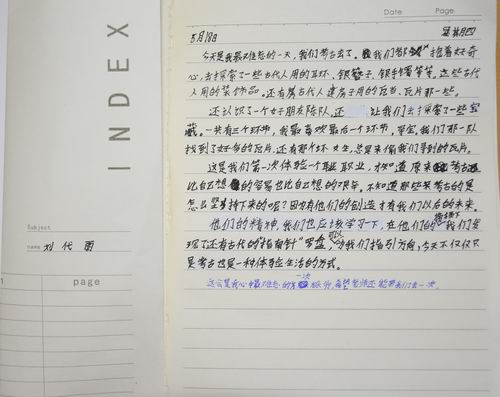 INDEX
Subject
name 刘代雨
page
Date Page
5月18日 星期四
今天是我最难忘的一天，我们考古去了。我们都抱着好奇
心，去探索了一些古代人用的耳环、银簪子、银手镯等等。这些古代
人用的装饰品。还有属古代人建房子用的瓦当、瓦片那一些。
还认识了一个好朋友陈队，还 让我们去探索了一些宝
藏。一共有三个环节，我最喜欢最后一个环节，寻宝，我们那一队
找到了好多的瓦片，还有那个环女生，总是来偷我们寻到的瓦片。
这是我们第一次体验一个职业，才知道原来考古
比自己想的容易也比自己想的艰辛。不知道那些来考古的是
怎么坚持下来的呢？因为有他们的创造才有我们以后的未来。
他们的精神，我们也应该学习一下，在他们的指挥下我们发
现了还有古代的“指南针”罗盘，可以为我们指引方向，今天不仅仅只
是考古也是一种体验生活的方式。
这会是我心中最难忘的一次旅行，希望老师还能带我们去一次。